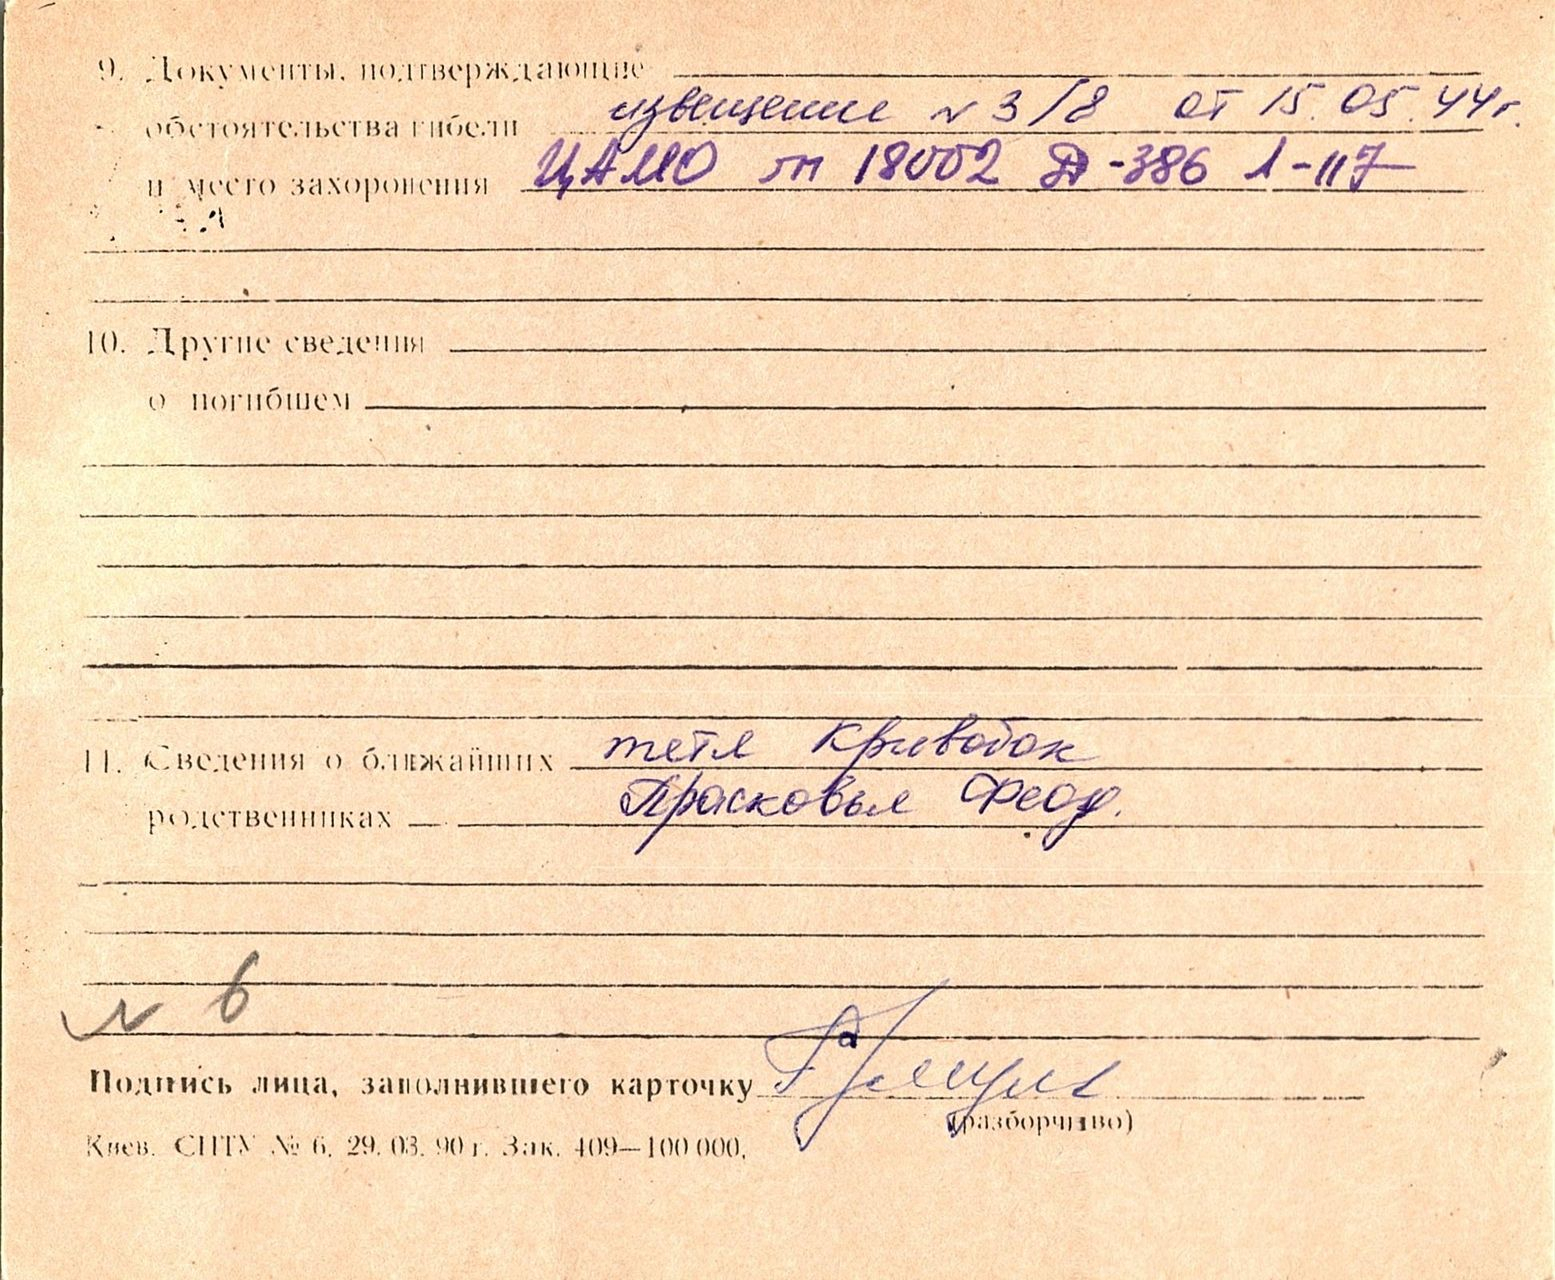 9. Документы, подтверждающие
обстоятельства гибели извещение N 3/8 от 15.05.44г.
и место захоронения ЦАМО оп 18002 Д-386 Л-117
10. Другие сведения
о погибшем
11. Сведения о ближайших тетя Кривобок
родственниках Прасковья Феод.
N 6
Подпись лица, заполнившего карточку
(разборчиво)
Киев. СПТУ № 6. 29. 03. 90 г. Зак. 409—100 000.